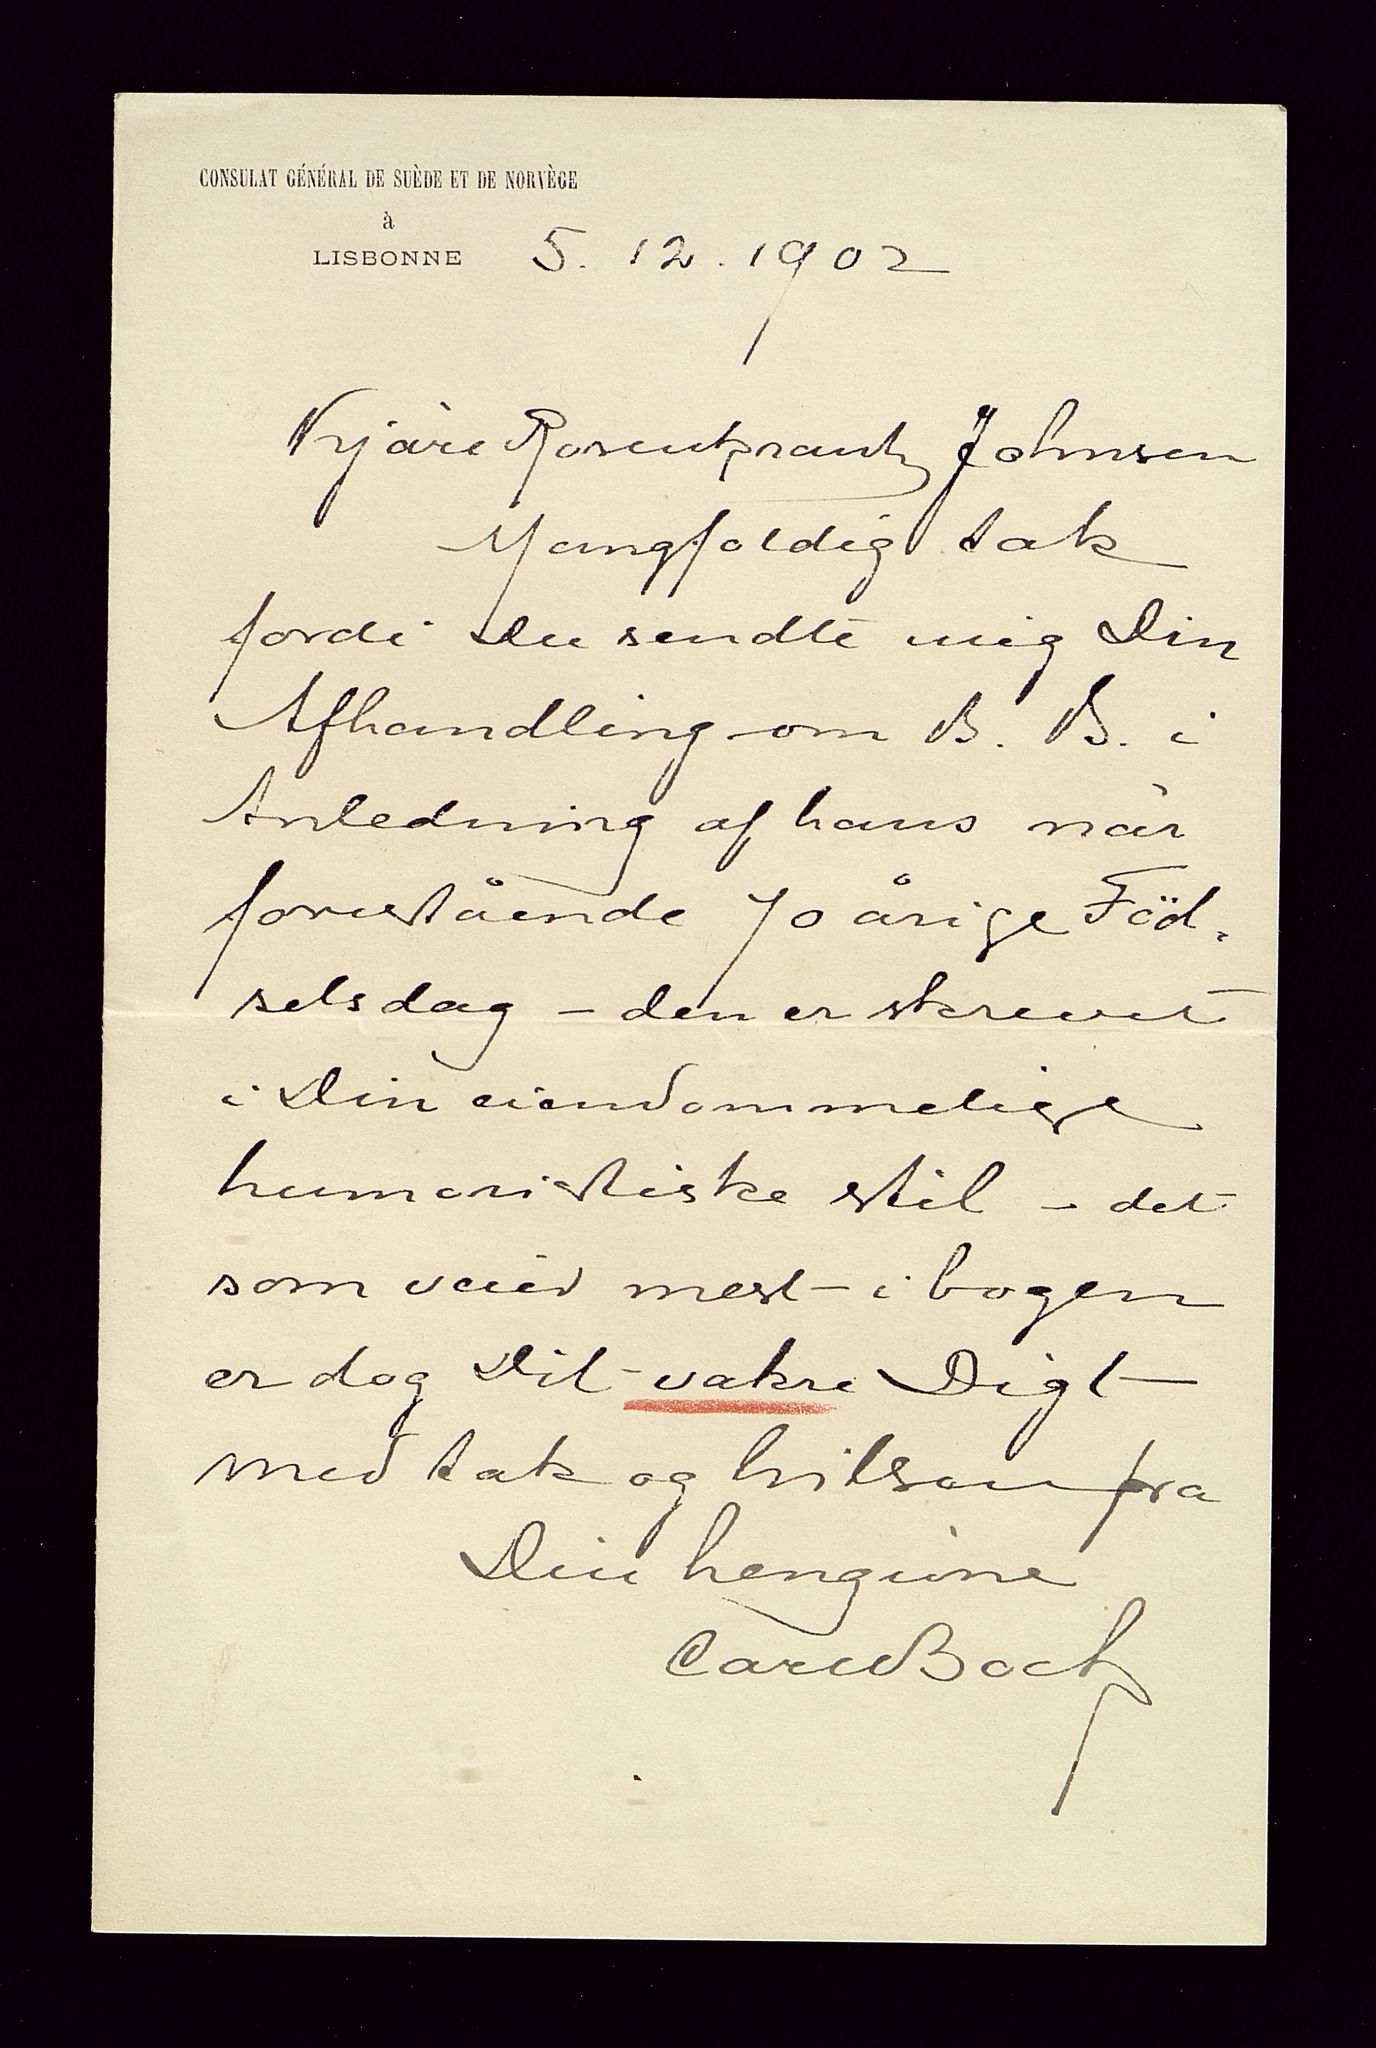 CONSULAT GÉNÉRAL DE SUÈDE ET DE NORVÈGE
à
LISBONNE 5. 12. 1902
Kjäre Rosenkrantz Johnsen
Mangfoldig tak
fordi Du sendte mig Din
Afhandling om B. B. i
Anledning af hans när
forestående 70 årige Föd-
selsdag - den er skrevet
i Din eiendommelige
humoristiske stil - det
som veier mest i bogen
er dog Dit vakre Digt -
med tak og hilsen fra
Din hengivne
Carl Bock